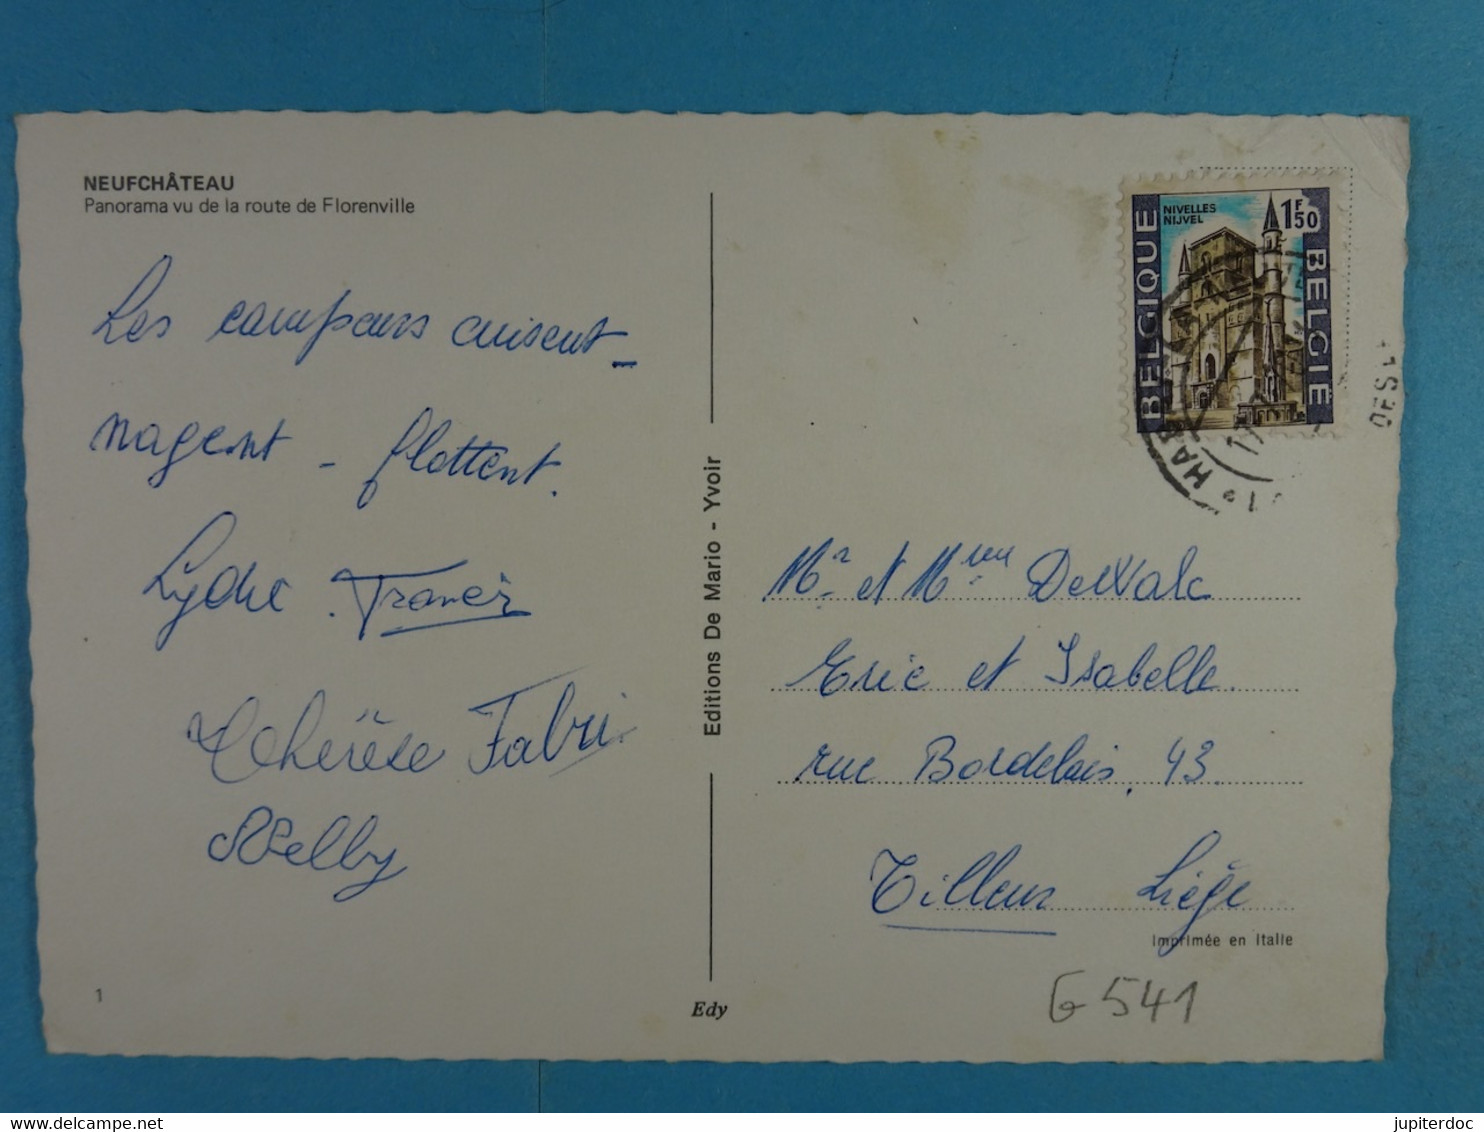 NEUFCHÂTEAU
Panorama vu de la route de Florenville
Les campeurs cuisent -
nagent - flottent.
Lydie Francis
Thérèse Fabri
Nelly
1
Editions De Mario - Yvoir
Edy
NIVELLES
NIJVEL
1F50
BELGIQUE
BELGIË
Mr et Mme Delvalc
Eric et Isabelle
rue Bordelais, 43
Tilleur Liège
Imprimée en Italie
G 541
jupiterdoc